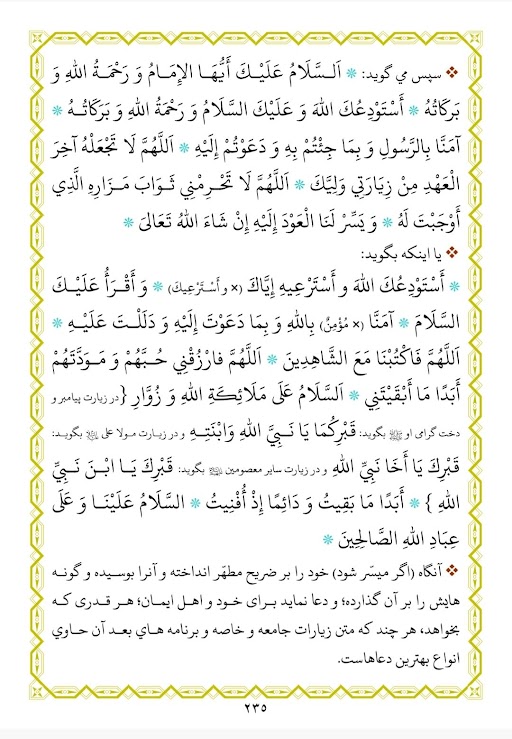 ❖ سپس مي گويد: * اَلسَّلَامُ عَلَيْكَ أَيُّهَا الإِمَامُ وَ رَحْمَةُ اللهِ وَ
بَرَكَاتُهُ * أَسْتَوْدِعُكَ اللهَ وَ عَلَيْكَ السَّلَامُ وَ رَحْمَةُ اللهِ وَ بَرَكَاتُهُ *
آمَنَّا بِالرَّسُولِ وَ بِمَا جِئْتُمْ بِهِ وَ دَعَوْتُمْ إِلَيْهِ * اَللَّهُمَّ لَا تَجْعَلْهُ آخِرَ
الْعَهْدِ مِنْ زِيَارَتِي وَلِيَّكَ * اَللَّهُمَّ لَا تَحْرِمْنِي ثَوَابَ مَزَارِهِ الَّذِي
أَوْجَبْتَ لَهُ * وَ يَسِّرْ لَنَا الْعَوْدَ إِلَيْهِ إِنْ شَاءَ اللهُ تَعَالَىٰ *
❖ يا اينكه بگويد:
* أَسْتَوْدِعُكَ اللهَ وَ أَسْتَرْعِيهِ إِيَّاكَ (× وَ أَسْتَرْعِيكَ) * وَ أَقْرَأُ عَلَيْكَ
السَّلَامَ * آمَنَّا (× مُؤْمِنٌ) بِاللهِ وَ بِمَا دَعَوْتَ إِلَيْهِ وَ دَلَلْتَ عَلَيْهِ *
اَللَّهُمَّ فَاكْتُبْنَا مَعَ الشَّاهِدِينَ * اَللَّهُمَّ فارْزُقْنِي حُبَّهُمْ وَ مَوَدَّتَهُمْ
أَبَدًا مَا أَبْقَيْتَنِي * اَلسَّلَامُ عَلَى مَلَائِكَةِ اللهِ وَ زُوَّارِ {در زيارت پيامبر و
دخت گرامى او ﷺ بگويد: قَبْرِكُمَا يَا نَبِيَّ اللهِ وَابْنَتِهِ و در زيارت مولا على بگويد:
قَبْرِكَ يَا أَخَا نَبِيِّ اللهِ و در زيارت ساير معصومين بگويد: قَبْرِكَ يَا ابْنَ نَبِيِّ
اللهِ } * أَبَدًا مَا بَقِيتُ وَ دَائِمًا إِذْ أُفْنِيتُ * السَّلَامُ عَلَيْنَا وَ عَلَى
عِبَادِ اللهِ الصَّالِحِينَ *
❖ آنگاه (اگر ميسّر شود) خود را بر ضريح مطهّر انداخته و آنرا بوسيده و گونه
هايش را بر آن گذارده؛ و دعا نمايد براى خود و اهل ايمان؛ هر قدرى كه
بخواهد، هر چند كه متن زيارات جامعه و خاصه و برنامه هاي بعد آن حاوي
انواع بهترين دعاهاست.
٢٣٥